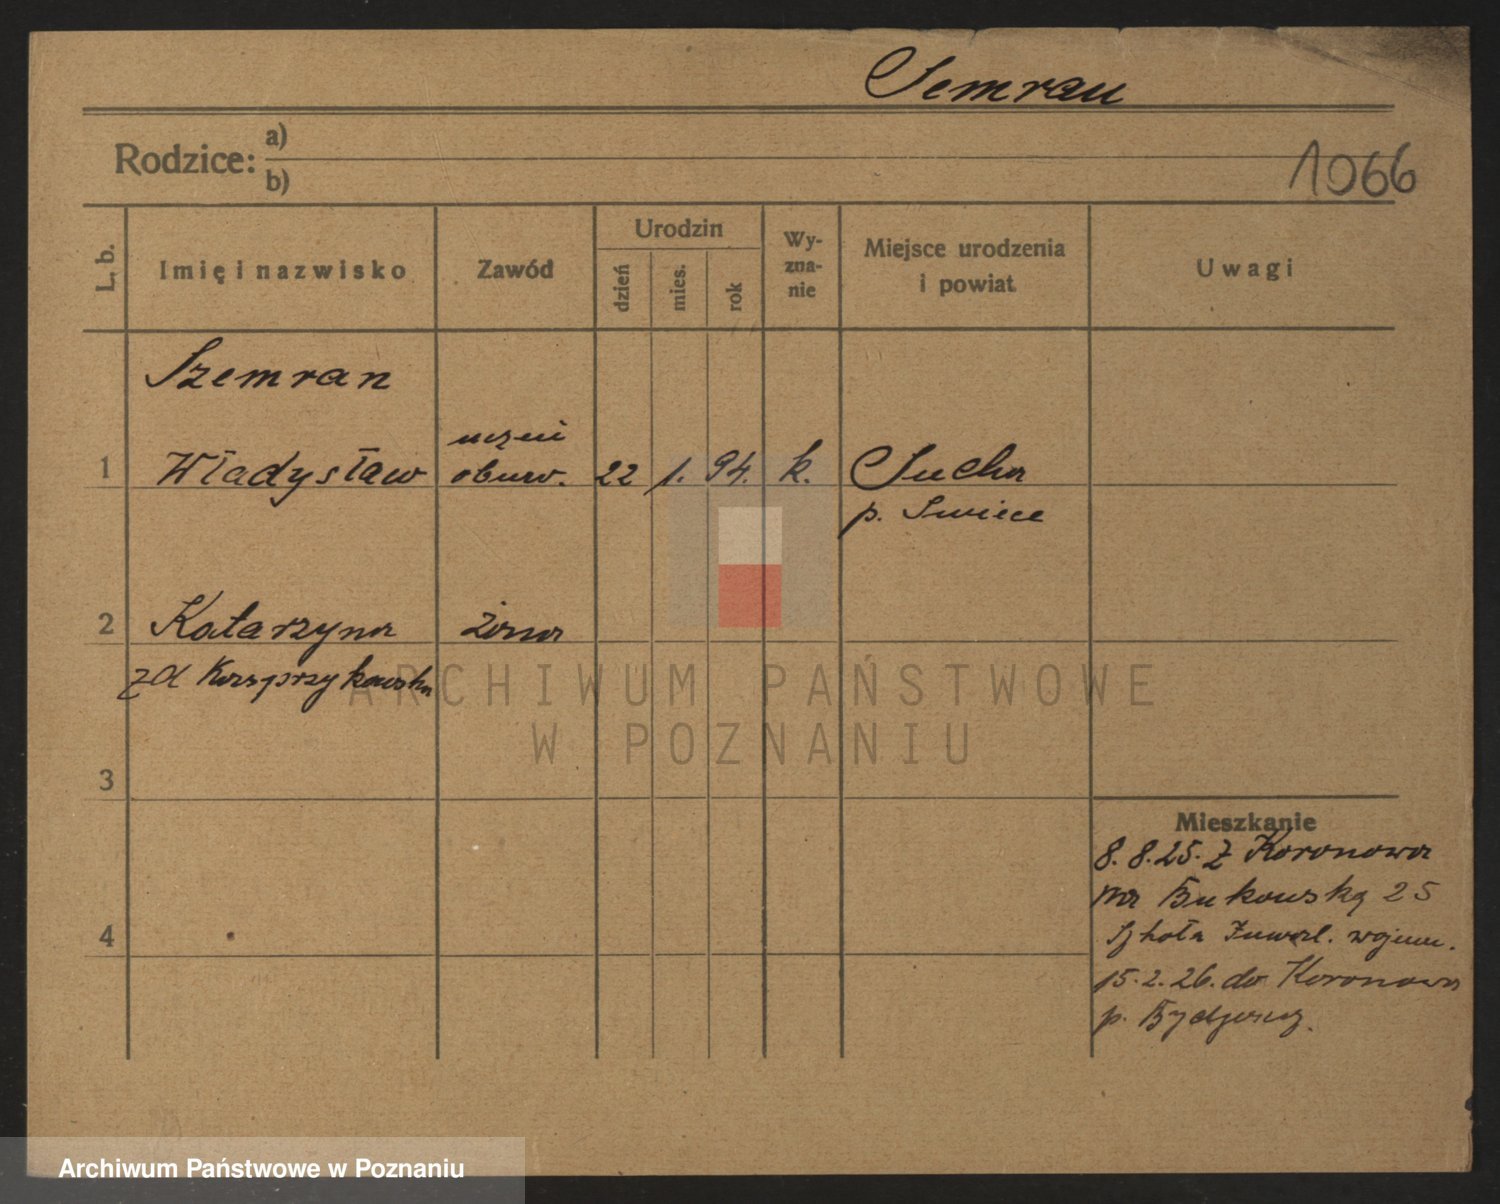 Semrau
Rodzice: a)
b)
1066
L. b.
Imię i nazwisko
Zawód
Urodzin
dzień
mies.
rok
Wy-
zna-
nie
Miejsce urodzenia
i powiat
Uwagi
Szemran
uczeń
1 Władysław obuw. 22 1. 94. k. Sucha
p. Swiece
2 Katarzyna żona
zd
3
Mieszkanie
8. 8. 25. z Koronowa
na Bukowską 25
Szkoła Inwal. wojenn.
4
15. 2. 26. do Koronowa
p. Bydgoszcz.
ARCHIWUM PAŃSTWOWE
W POZNANIU
Archiwum Państwowe w Poznaniu